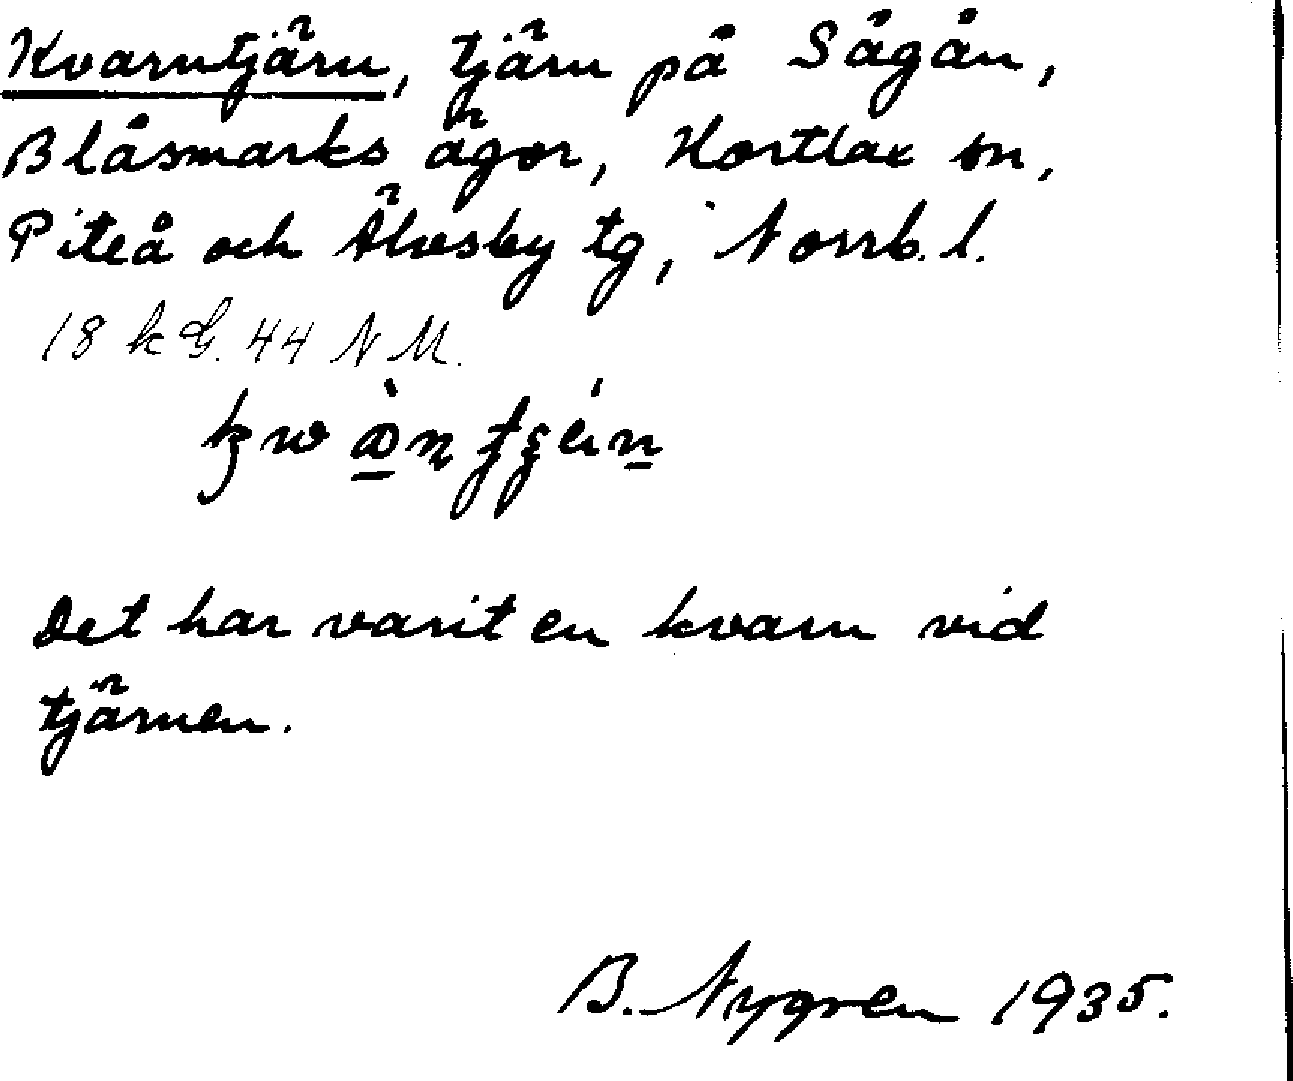 Kvarntjärn, tjärn på Sågån,
Blåsmarks ägor, Hortlax sn,
Piteå och Älvsby tg, Norrb. l.
18 k G. 44 N M.
Det har varit en kvarn vid
tjärnen.
B. Nygren 1935.